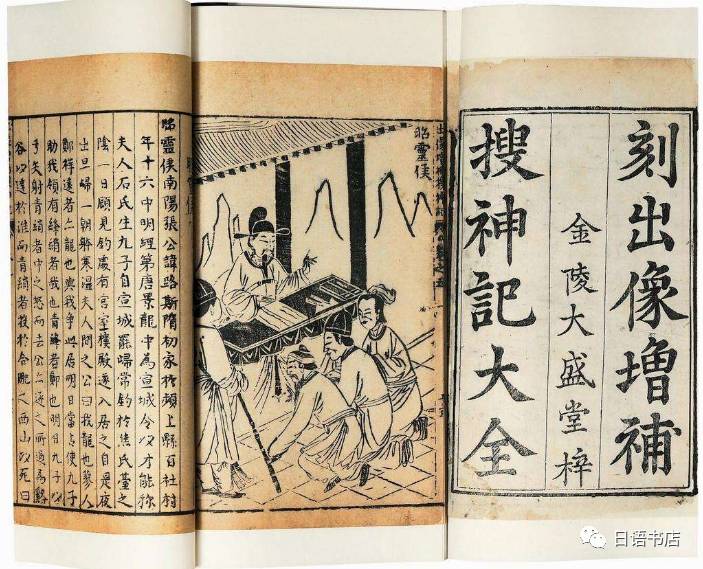 刻出像增補
金陵大盛堂梓
搜神記大全
昭靈侯
昭靈侯南陽張公諱路斯隋初家於潁上縣百社村
年十六中明經第唐景龍中為宣城令以才能称
夫人石氏生九子自宣城罷歸常釣於焦氏臺之
陰一日顧見釣處有宮室樓殿遂入居之自是夜
出旦歸一朝歸寒湿夫人問之公曰我龍也蓼人
鄭祥遠者亦龍也與我爭此居明日當占使九子
助我領有絳綃者我也青綃者鄭也明日九子以
弓矢射青綃者中之怒而去公亦逐之所過為谿
谷以達於淮而青綃者投於合肥之西山以死曰
日语书店